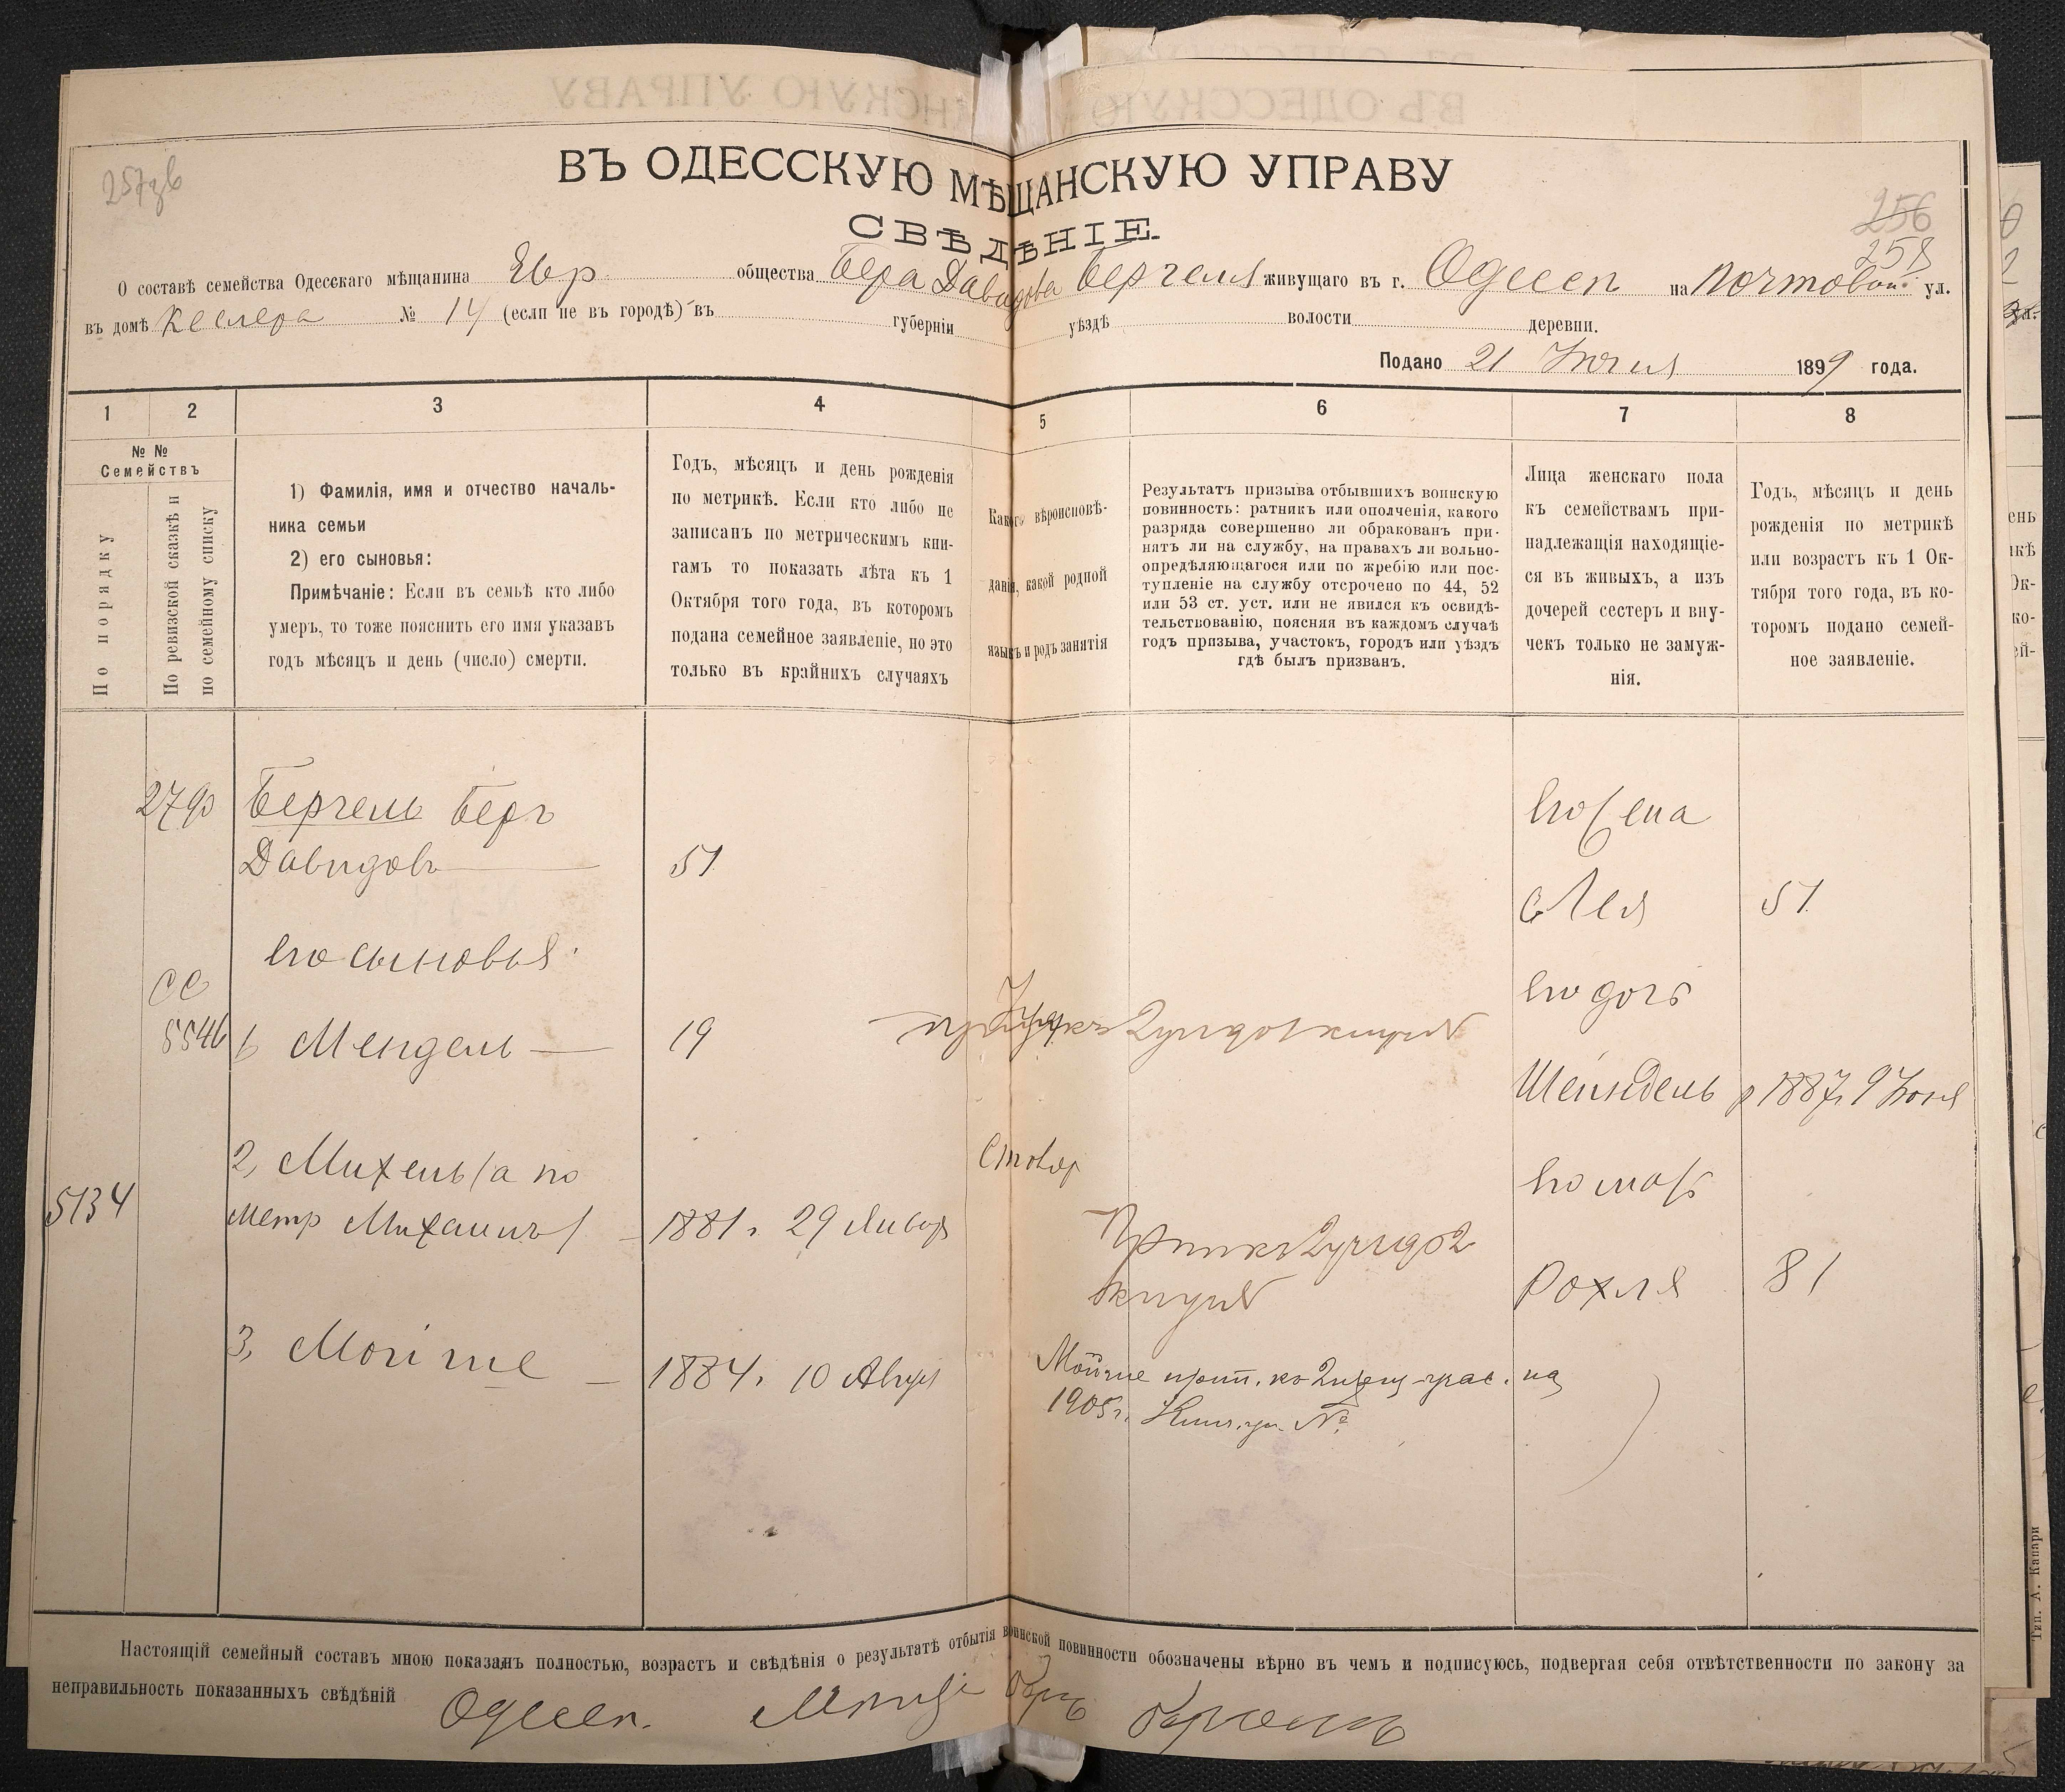 ВЪ ОДЕССКУЮ МѢЩАНСКУЮ УПРАВУ
СВѢДѢНІЕ.
256
258
О составѣ семейства Одесскаго мѣщанина Евр общества Бера Давидова Бергеля живущаго въ г. Одессѣ на Почтовой ул.
въ домѣ Кеслера № 14 (если не въ городѣ) въ губерніи уѣздѣ волости деревни.
Подано 21 1899 года.
1 2 3 4 5 6 7 8
№ №
Семействъ
По порядку
По ревизской сказкѣ и
по семейному списку
1) Фамилія, имя и отчество началь-
ника семьи
2) его сыновья:
Примѣчаніе: Если въ семьѣ кто либо
умеръ, то тоже пояснить его имя указавъ
годъ мѣсяцъ и день (число) смерти.
Годъ, мѣсяцъ и день рожденія
по метрикѣ. Если кто либо не
записанъ по метрическимъ кни-
гамъ то показать лѣта къ 1
Октября того года, въ которомъ
подана семейное заявленіе, но это
только въ крайнихъ случаяхъ
Какого вѣроисповѣ-
данія, какой родной
языкъ и родъ занятія
Результатъ призыва отбывшихъ воинскую
повинность: ратникъ или ополченія, какого
разряда совершенно ли обракованъ при-
нятъ ли на службу, на правахъ ли вольно-
опредѣляющагося или по жребію или пос-
тупленіе на службу отсрочено по 44, 52
или 53 ст. уст. или не явился къ освидѣ-
тельствованію, поясняя въ каждомъ случаѣ
годъ призыва, участокъ, городъ или уѣздъ
гдѣ былъ призванъ.
Лица женскаго пола
къ семействамъ при-
надлежащія находящіе-
ся въ живыхъ, а изъ
дочерей сестеръ и вну-
чекъ только не замуж-
нія.
Годъ, мѣсяцъ и день
рожденія по метрикѣ
или возрастъ къ 1 Ок-
тября того года, въ ко-
торомъ подано семей-
ное заявленіе.
Бергель Беръ
Давидовъ 51
его жена
Лея 51
его сыновья
СС
5546
1 Мендель 19
его дочь
Шейндель р 1887 г 9 Іюня
2, Михель (а по
метр Михаилъ) 1881 г. 29 Январ
5134
Столяр
его мать
Рохля 81
3, Мойше 1884 г. 10 Август
Мойше на
1905 г. №
Настоящій семейный составъ мною показанъ полностью, возрастъ и свѣдѣнія о результатѣ отбытія воинской повинности обозначены вѣрно въ чемъ и подписуюсь, подвергая себя отвѣтственности по закону за
неправильность показанныхъ свѣдѣній
Одесса.
Тип. А. Капари